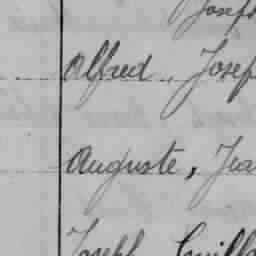 Joseph
Alfred, Josep
Auguste, Jea
Joseph Guill